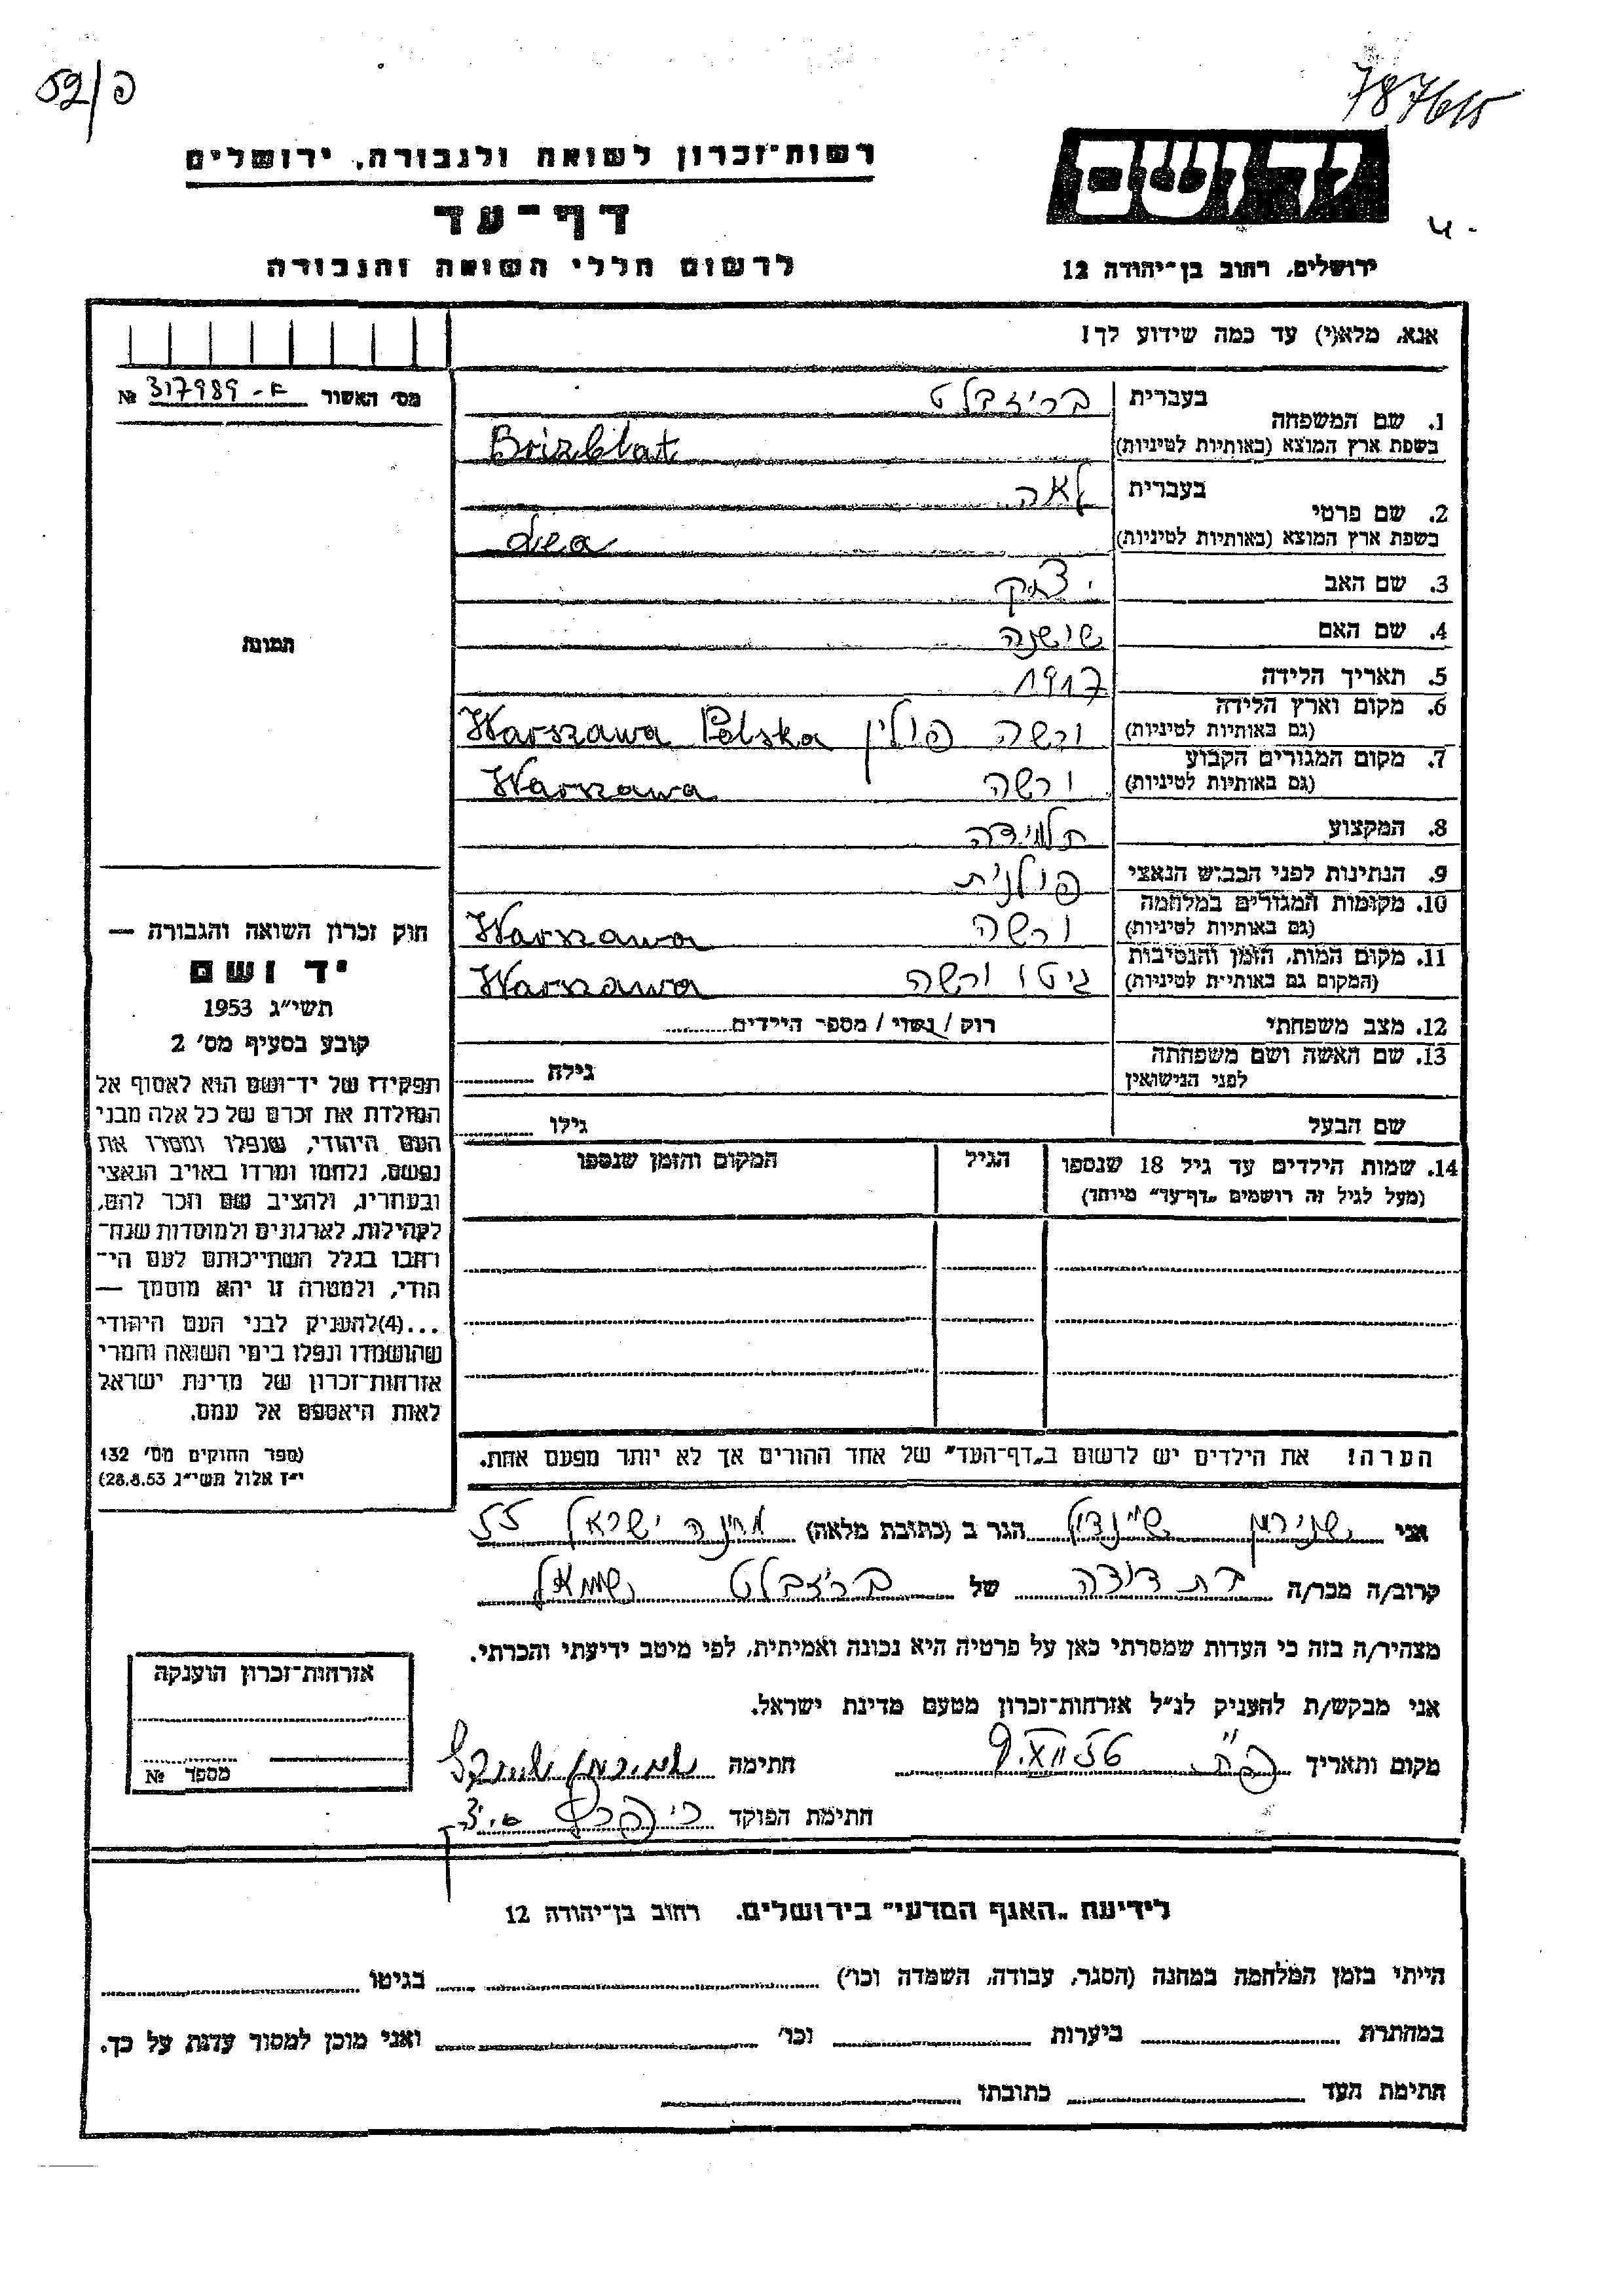 רשות־זכרון לשואה ולגבורה, ירושלים
דף־עד
לרשום חללי השואה והגבורה
ידושם
ירושלים, רחוב בן־יהודה 12
אנא, מלא(י) עד כמה שידוע לך!
מס׳ האשור № 317989
1. שם המשפחה
בעברית בריזבלט
בשפת ארץ המוצא (באותיות לטיניות) Brizblat
2. שם פרטי
בעברית לאה
בשפת ארץ המוצא (באותיות לטיניות) Lea
3. שם האב יצחק
4. שם האם שושנה
5. תאריך הלידה 1917
6. מקום וארץ הלידה
(גם באותיות לטיניות) ורשה פולין Warszawa Polska
7. מקום המגורים הקבוע
(גם באותיות לטיניות) ורשה Warszawa
8. המקצוע תלמידה
9. הנתינות לפני הכבוש הנאצי פולנית
10. מקומות המגורים במלחמה
(גם באותיות לטיניות) ורשה Warszawa
11. מקום המות, הזמן והנסיבות
(המקום גם באותיות לטיניות) גיטו ורשה Warszawa
12. מצב משפחתי רוק / נשוי / מספר הילדים
13. שם האשה ושם משפחתה
לפני הנישואין גילה
שם הבעל גילו
14. שמות הילדים עד גיל 18 שנספו
(מעל לגיל זה רושמים „דף־עד” מיוחד)
הגיל
המקום והזמן שנספו
הערה! את הילדים יש לרשום ב„דף־העד” של אחד ההורים אך לא יותר מפעם אחת.
תמונה
חוק זכרון השואה והגבורה —
יד ושם
תשי״ג 1953
קובע בסעיף מס׳ 2
תפקידו של יד־ושם הוא לאסוף אל
המולדת את זכרם של כל אלה מבני
העם היהודי, שנפלו ומסרו את
נפשם, נלחמו ומרדו באויב הנאצי
ובעוזריו, ולהציב שם וזכר להם,
לקהילות, לארגונים ולמוסדות שנח־
רבו בגלל השתייכותם לעם הי־
הודי, ולמטרה זו יהא מוסמך —
...(4)להעניק לבני העם היהודי
שהושמדו ונפלו בימי השואה והמרי
אזרחות־זכרון של מדינת ישראל
לאות היאספם אל עמם.
(ספר החוקים מס׳ 132
י״ז אלול תשי״ג 28.8.53)
אני שיינדל הגר ב (כתובת מלאה) מחנה ישראל 55
קרוב/ה מכר/ה בת דודה של בריזבלט שמואל
מצהיר/ה בזה כי העדות שמסרתי כאן על פרטיה היא נכונה ואמיתית, לפי מיטב ידיעתי והכרתי.
אני מבקש/ת להעניק לנ״ל אזרחות־זכרון מטעם מדינת ישראל.
מקום ותאריך חתימה
חתימת הפוקד
אזרחות־זכרון הוענקה
מספר №
לידיעת „האגף המדעי” בירושלים. רחוב בן־יהודה 12
הייתי בזמן המלחמה במחנה (הסגר, עבודה, השמדה וכו׳) בגיטו
במחתרת ביערות וכו׳ ואני מוכן למסור עדות על כך.
חתימת העד כתובתו